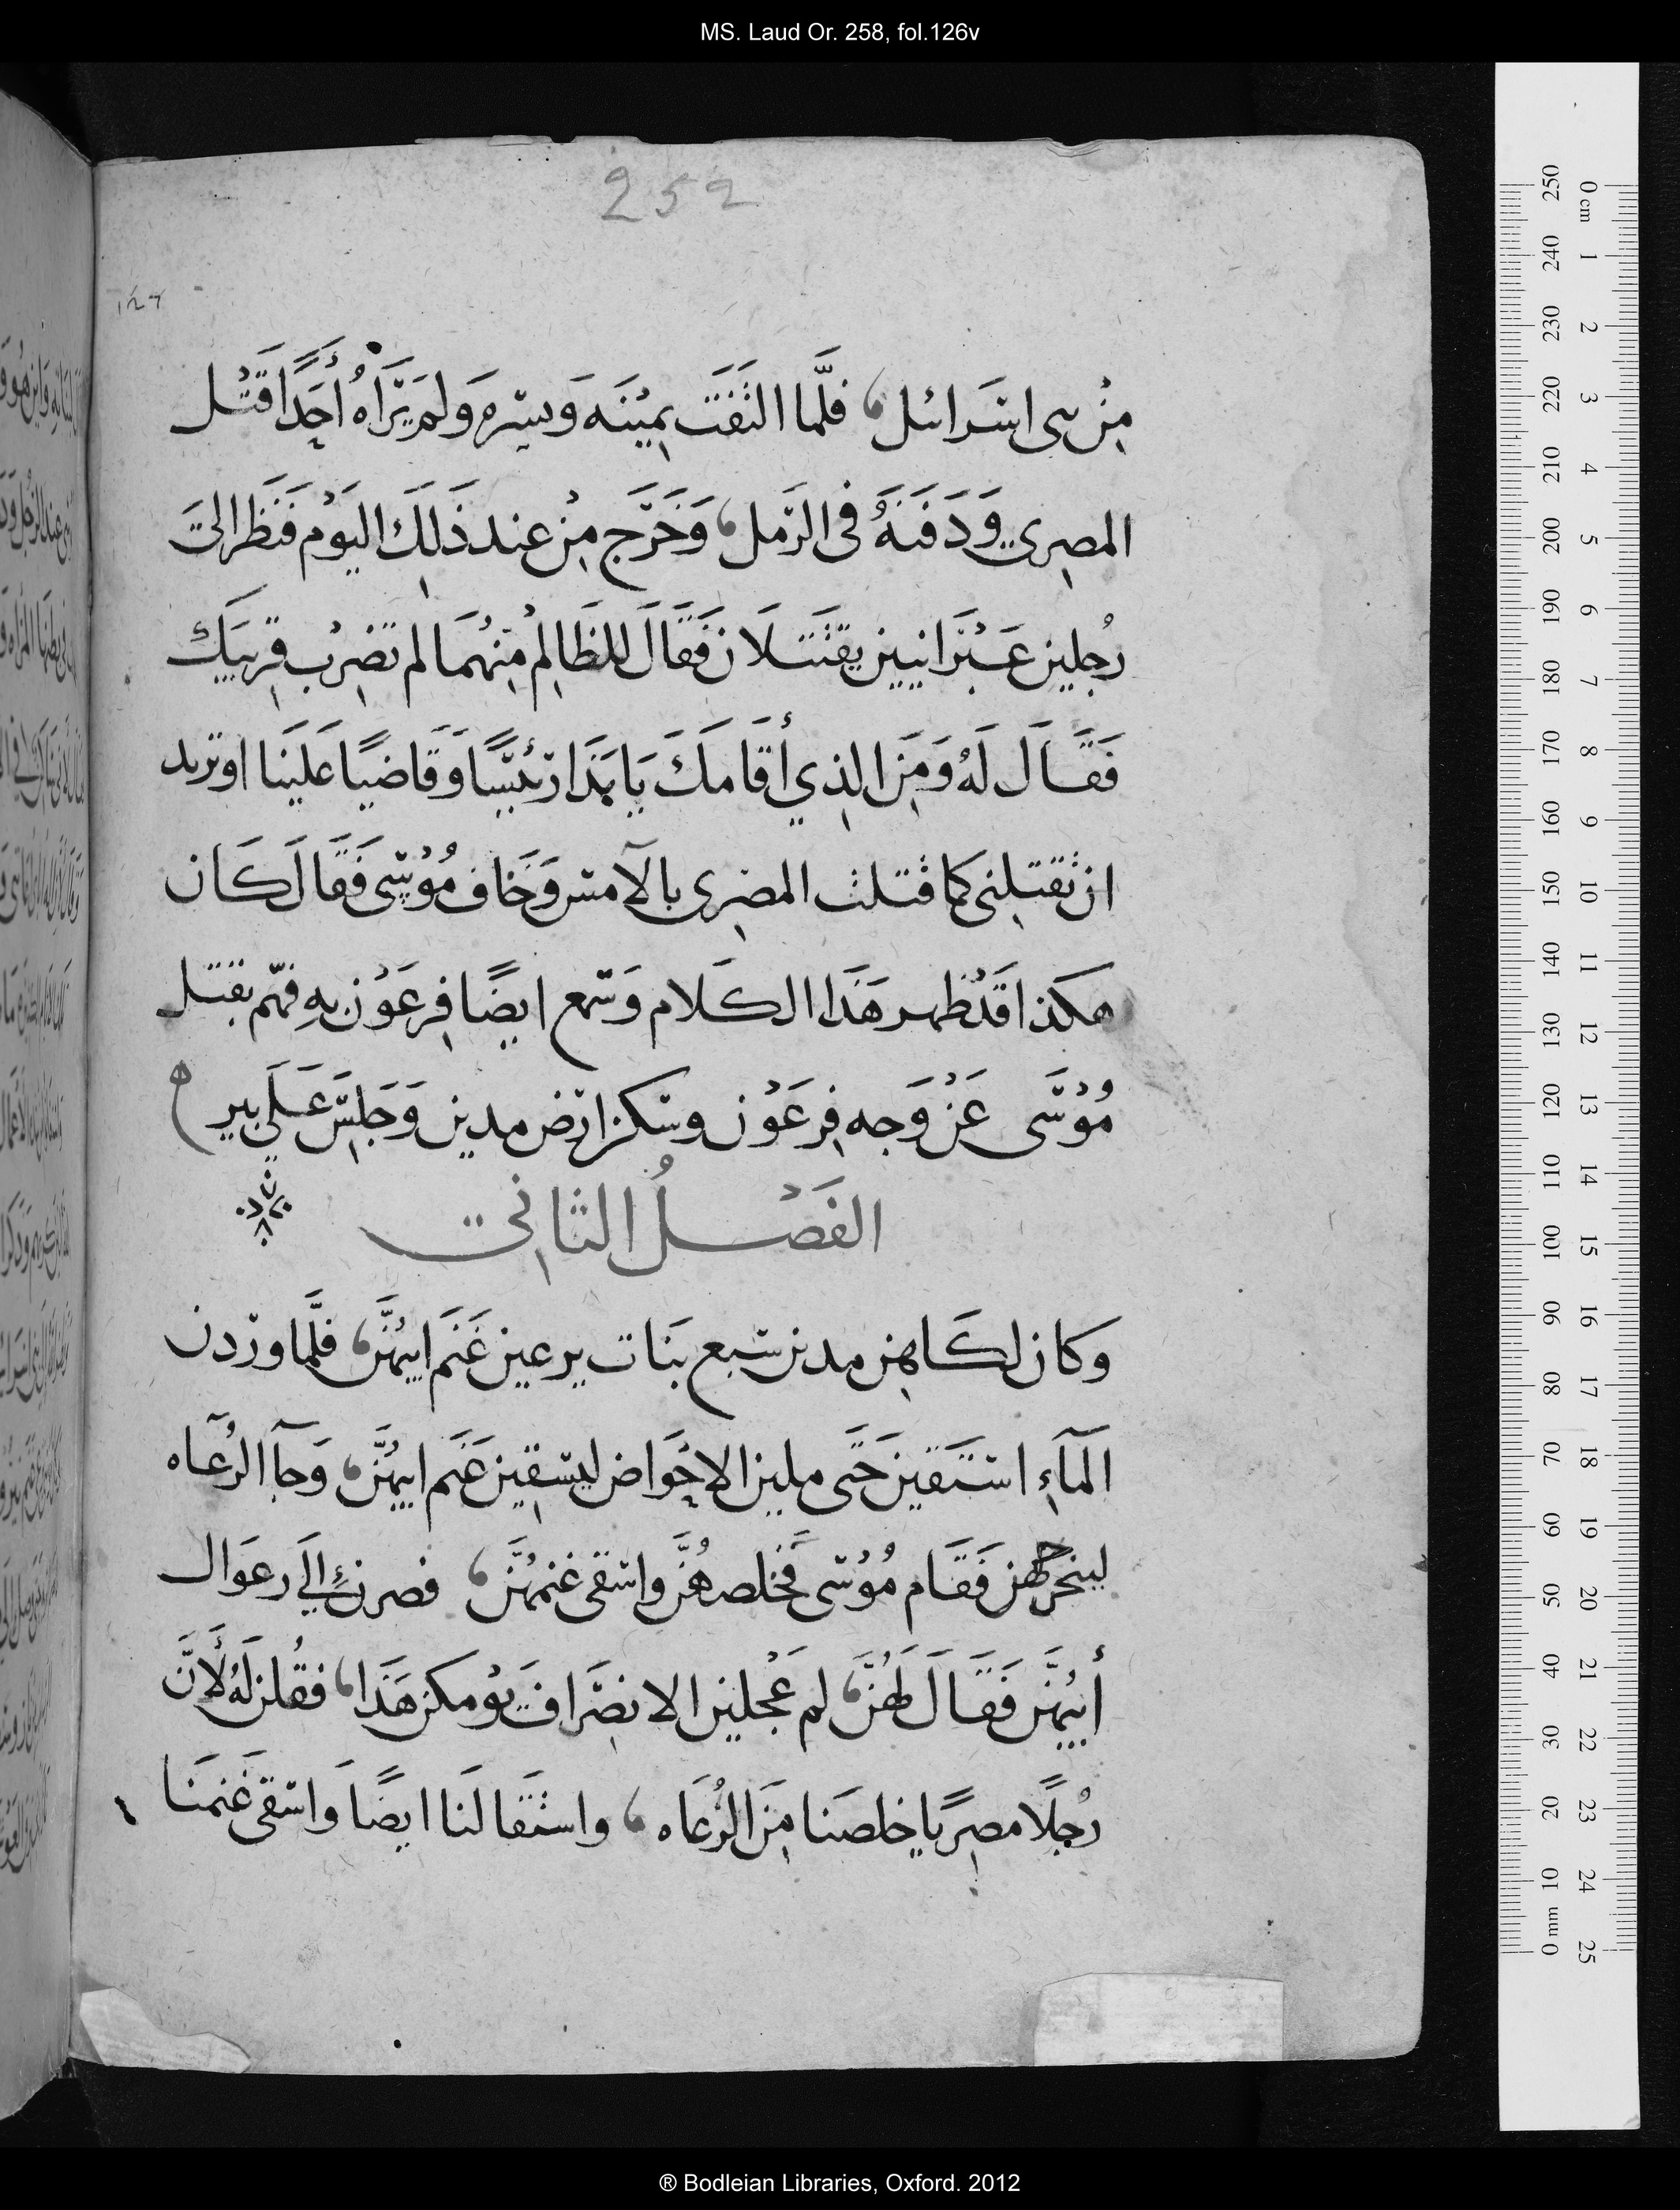 MS. Laud Or. 258, fol.126v
252
مِنْ بنى اسَرائل، فلَّما التَفَتَ يمِيْنَه وَيسَرِه وَلم يَرَاهُ أَحَدًا قَتْل
المصِرِي وَدَفَنَهُ فى الرَمل، وَخَرَج مِنْ عند ذَلِكَ اليَوْم فَنَظَر الىَ
رُجلين عَبْرَانيين يقتَتلَان فَقَالَ للظَالِمْ مِنْهُمَا لم تضِرْب قِريبَكَ
فَقَالَ لَهُ وَمَن الذِي أَقَامكَ يَا هَذَا رئيسًا وَقَاضيًا عَليَنا او تريد
ان تقتِلنى كما قتلت المصِرى بالآمس وَخَاف مُوْسَى فَقَالَ كَان
هكذا قَدْ ظهر هَذَا الكَلام وَسَمع ايضًا فِرعَوْن بهِ فهّم بقتل
مُوْسَى عَنْ وَجه فِرعَوْن وسَكن ارض مدين وَجَلِسَ عَلَي بير
الفَصْلُ الثاني
وكان لكَاهِن مدين سَبع بَنات يرعين غَنَم ابيهُنَّ، فلَّما وردن
المَآءِ استَقين حَتَى ملين الاحَواض ليسَقِين غَنَم ابيهُنَّ، وَجآ الرُعَاه
ليخرجهن فَقَام مُوْسَى فخلصهُنَّ واسَقى غنمهُنَّ، فصرنَ الَي رعوال
أبيهُنَّ فَقَالَ لَهُنَّ، لم عَجْلين الانصَراف يوْمكن هَذَا، فقُلن لَهُ لأَنَّ
رُجلًا مصِرِيًا خلصَنا مِنَ الرُعَاه، واستَقا لنَا ايضًا وَاسَقى غَنمَنا
0 cm 1 2 3 4 5 6 7 8 9 10 11 12 13 14 15 16 17 18 19 20 21 22 23 24 25
250 240 230 220 210 200 190 180 170 160 150 140 130 120 110 100 90 80 70 60 50 40 30 20 10 0 mm
® Bodleian Libraries, Oxford. 2012